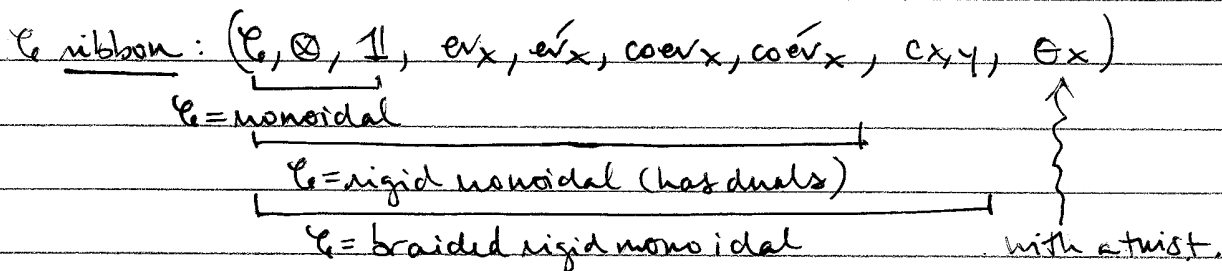 𝒞 ribbon: (𝒞, ⊗, 𝟙, ev_X, ev́_X, coev_X, coev́_X, c_{X,Y}, Θ_X)
𝒞 = monoidal
𝒞 = rigid monoidal (has duals)
𝒞 = braided rigid monoidal with a twist.